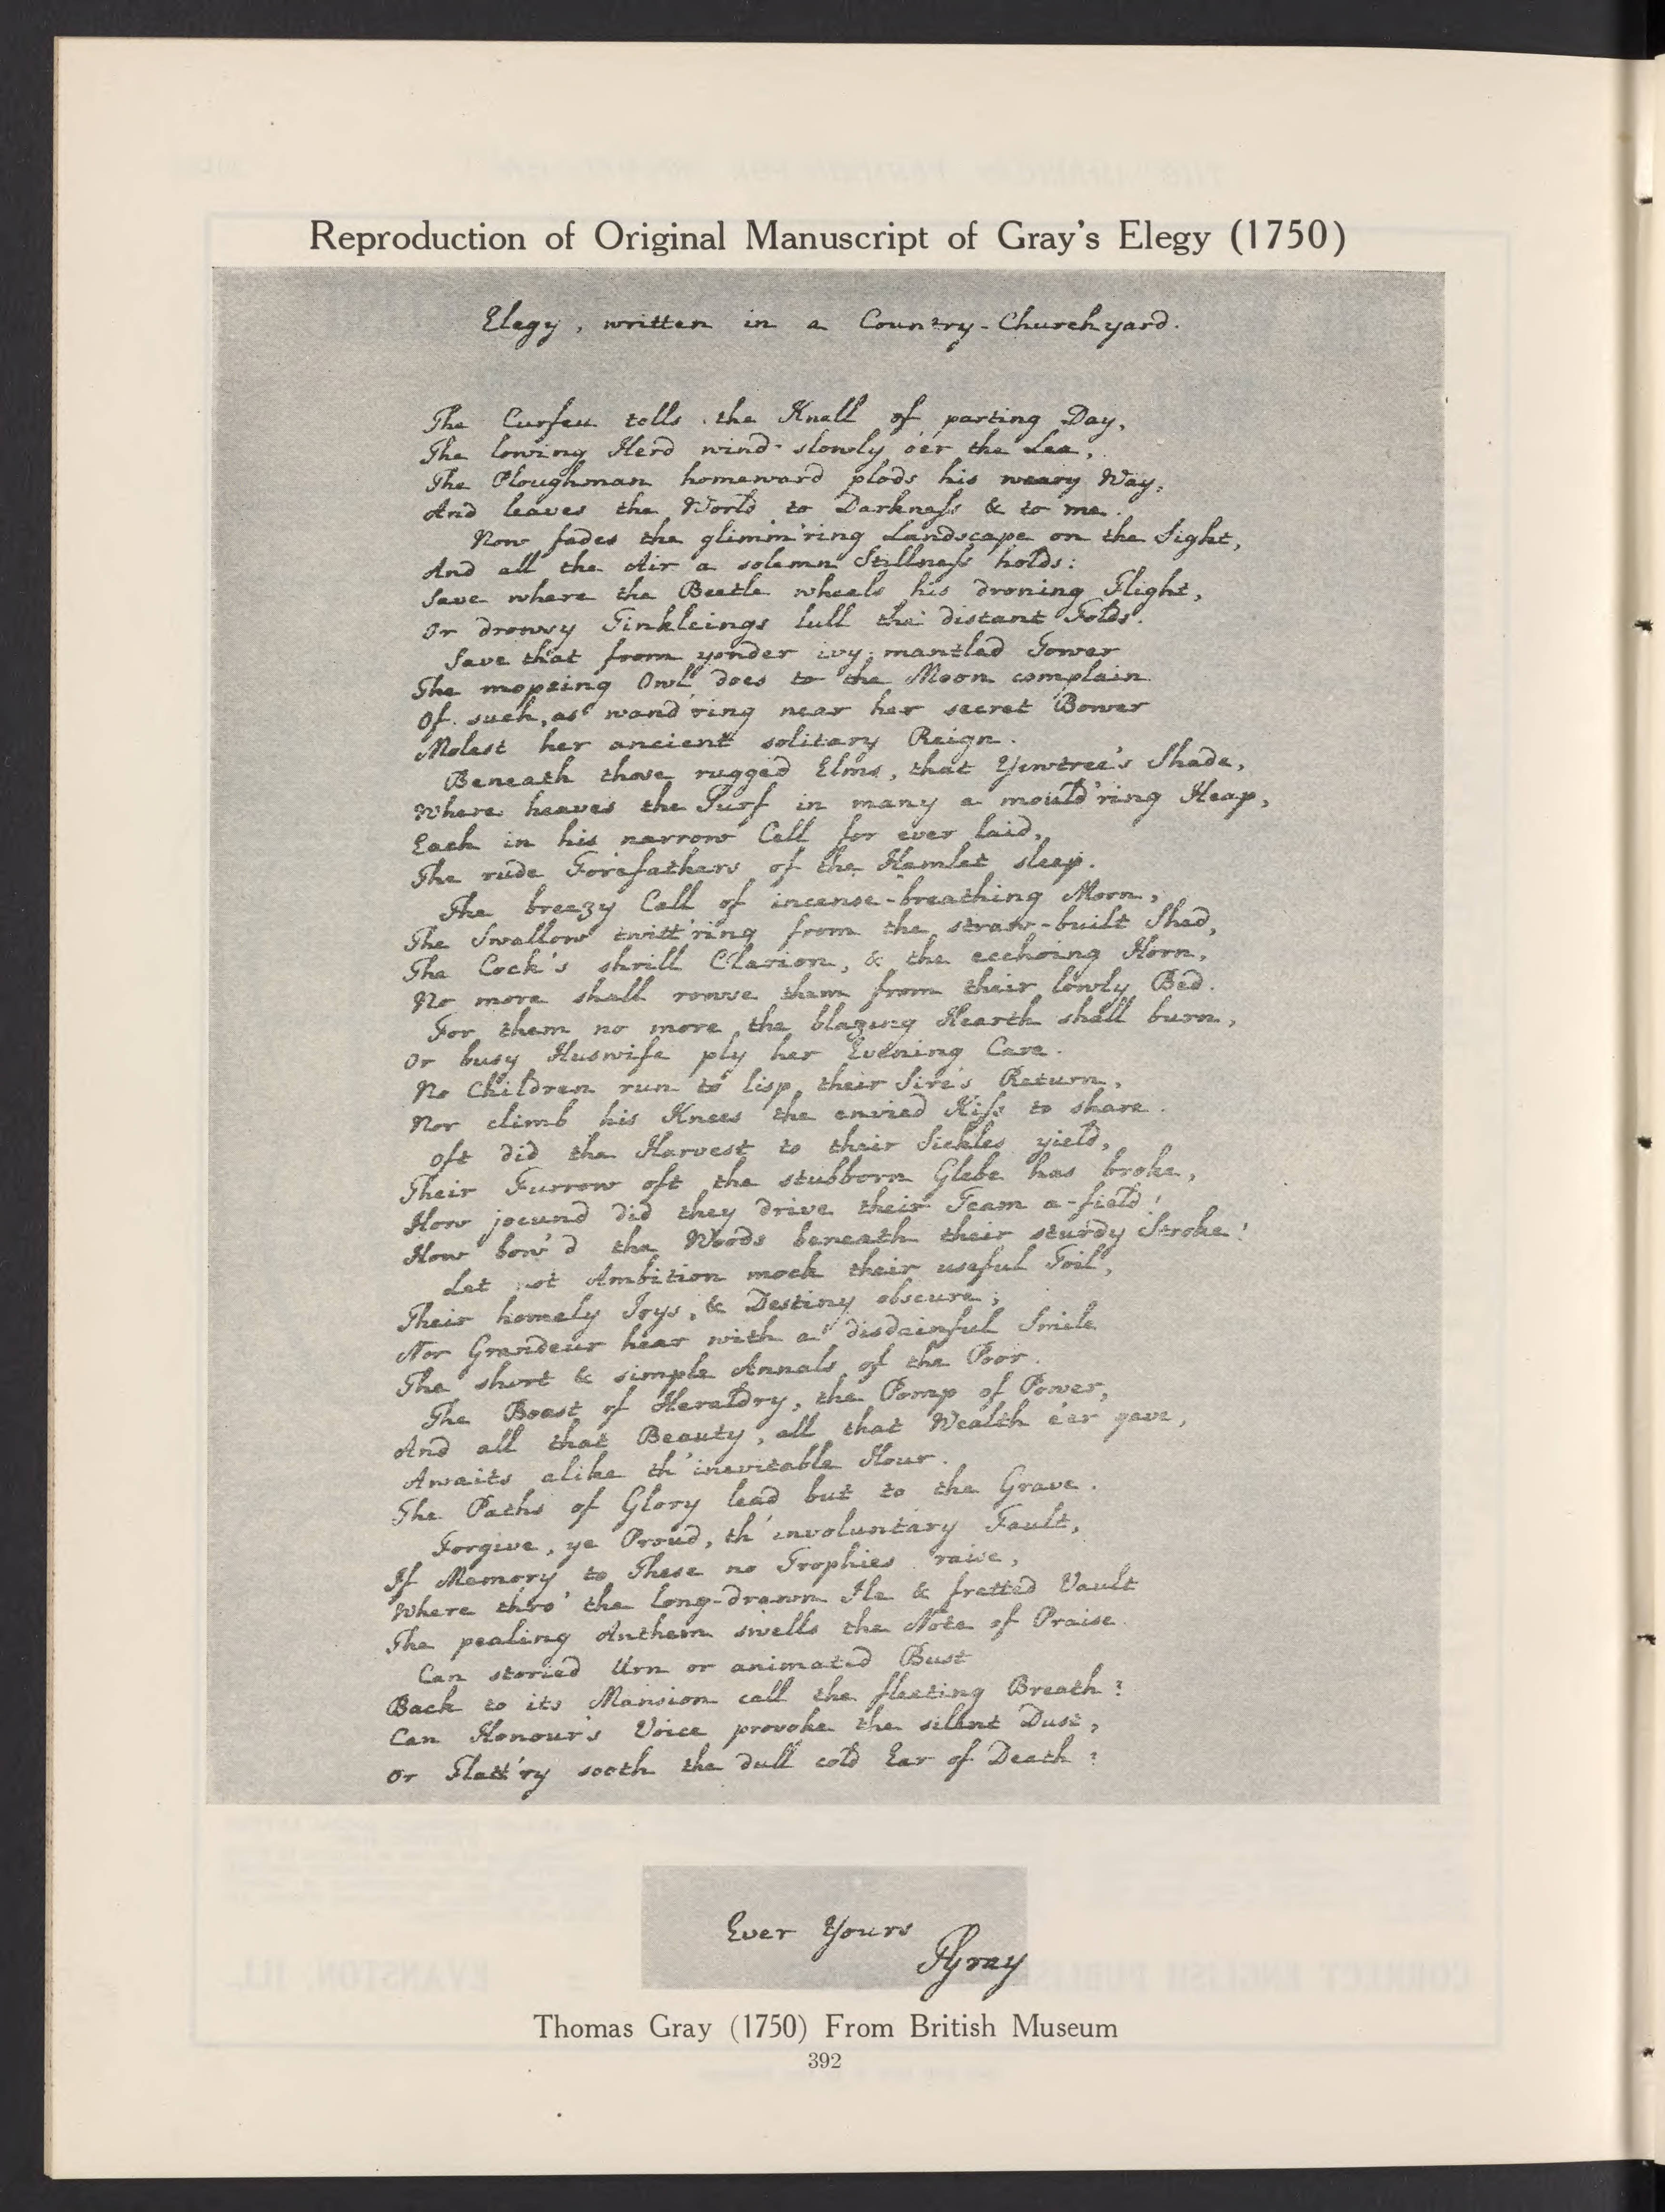 Reproduction of Original Manuscript of Gray's Elegy (1750)
Elegy, written in a Country-Churchyard.
The Curfeu tolls the Knell of parting Day,
The lowing Herd wind slowly o'er the Lea,
The Ploughman homeward plods his weary Way,
And leaves the World to Darkneſs & to me.
Now fades the glimm'ring Landscape on the Sight,
And all the Air a solemn Stillneſs holds:
Save where the Beetle wheels his droning Flight,
Or drowsy Tinkleings lull the distant Folds.
Save that from yonder ivy-mantled Tower
The mopeing Owl does to the Moon complain
Of such, as wand'ring near her secret Bower
Molest her ancient solitary Reign.
Beneath those rugged Elms, that Yewtree's Shade,
Where heaves the Turf in many a mould'ring Heap,
Each in his narrow Cell for ever laid,
The rude Forefathers of the Hamlet sleep.
The breezy Call of incense-breathing Morn,
The Swallow twitt'ring from the straw-built Shed,
The Cock's shrill Clarion, & the ecchoing Horn,
No more shall rowse them from their lowly Bed.
For them no more the blazing Hearth shall burn,
Or busy Huswife ply her Evening Care.
No Children run to lisp their Sire's Return,
Nor climb his Knees the envied Kiſs to share.
Oft did the Harvest to their Sickles yield,
Their Furrow oft the stubborn Glebe has broke,
How jocund did they drive their Team a-field!
How bow'd the Woods beneath their sturdy Stroke!
Let not Ambition mock their useful Toil,
Their homely Joys, & Destiny obscure;
Nor Grandeur hear with a disdainful Smile
The short & simple Annals of the Poor.
The Boast of Heraldry, the Pomp of Power,
And all that Beauty, all that Wealth e'er gave,
Awaits alike th' inevitable Hour.
The Paths of Glory lead but to the Grave.
Forgive, ye Proud, th' involuntary Fault,
If Memory to These no Trophies raise,
Where thro' the long-drawn Ile & fretted Vault
The pealing Anthem swells the Note of Praise.
Can storied Urn or animated Bust
Back to its Mansion call the fleeting Breath?
Can Honour's Voice provoke the silent Dust,
Or Flatt'ry sooth the dull cold Ear of Death?
Ever Yours
TGray
Thomas Gray (1750) From British Museum
392